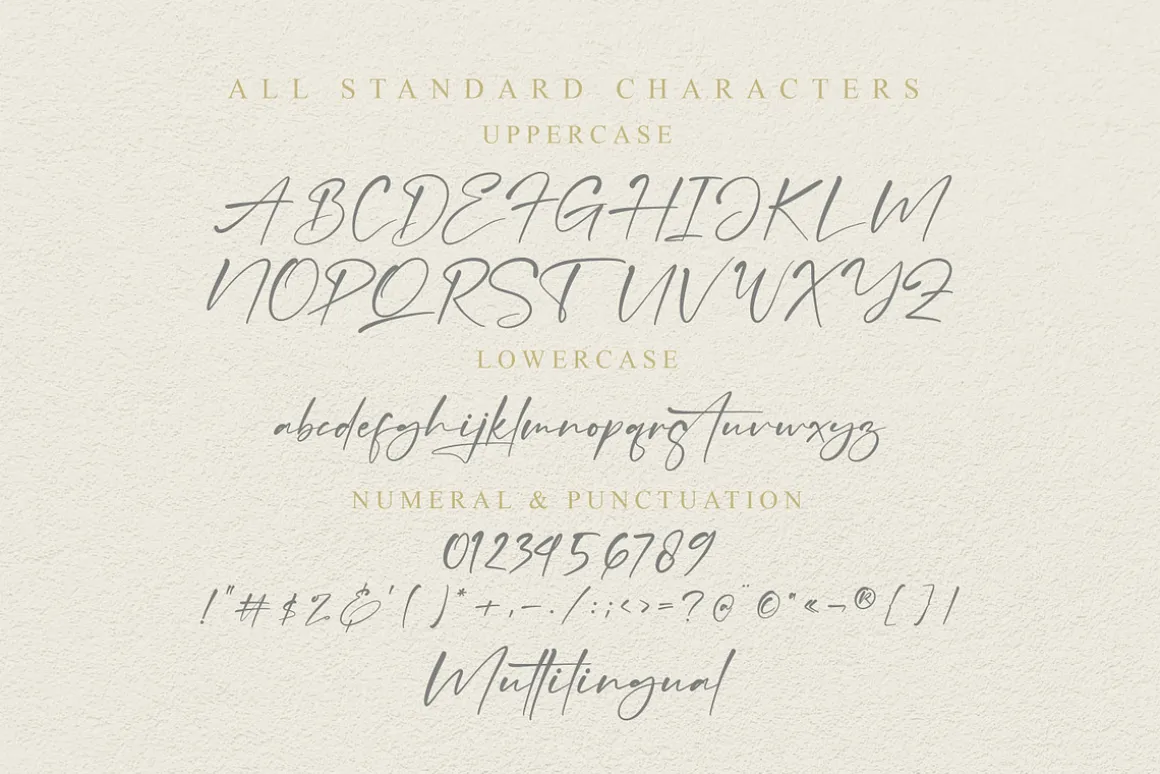 ALL STANDARD CHARACTERS
UPPERCASE
ABCDEFGHIJKLM
NOPQRSTUVWXYZ
LOWERCASE
abcdefghijklmnopqrstuvwxyz
NUMERAL & PUNCTUATION
0123456789
!"#$%&'()*+,-./:;<>=?@¨©"«¬®[]|
Multilingual